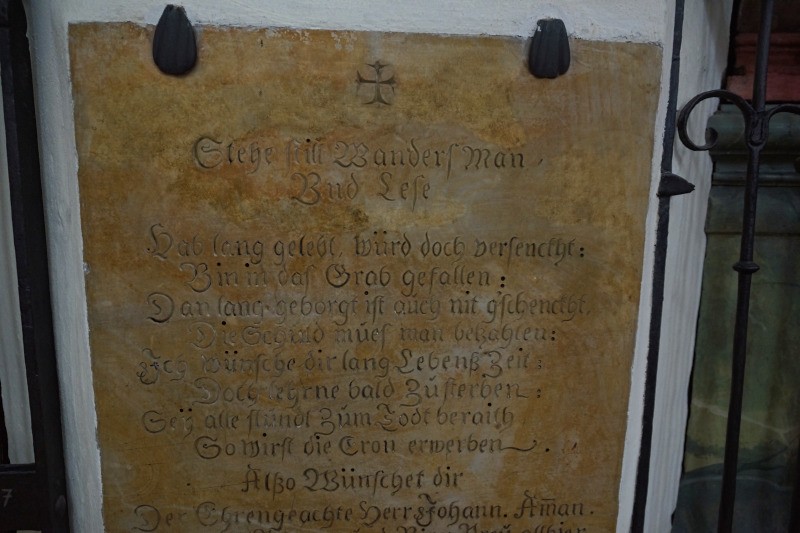 Stehe still Wanders Man
Vnd Lese
Hab lang gelebt, würd doch versenckht:
Bin in das Grab gefallen:
Dan lang geborgt ist auch nit gschenckht,
Die Schuld mues man bezahlen:
Ich wünsche dir lang Lebenß Zeit:
Doch lehrne bald Zu sterben:
Seÿ alle stundt Zum Todt beraith
So wirst die Cron erwerben.
Alßo Wünschet dir
Der Ehrengeachte Herr Johann. Aman.
und